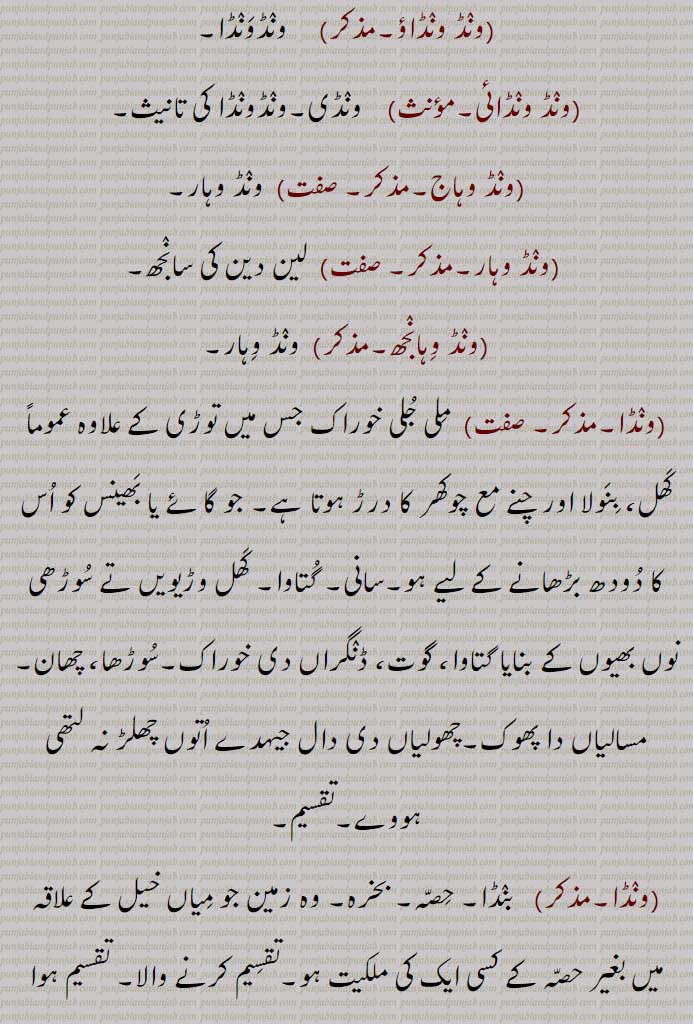 (ونٛڈ ونٛڈاؤ۔مذکر) ونٛڈوَنٛڈا۔
(ونٛڈ ونٛڈائی۔مؤنث) ونٛڈی۔ونٛڈونٛڈا کی تانیث۔
(ونٛڈ وہاج۔مذکر۔ صفت) ونٛڈ وہار۔
(ونٛڈ وہار۔مذکر۔ صفت) لین دین کی سانٛجھ۔
(ونٛڈ وِہانٛجھ۔مذکر) ونٛڈ وِہار۔
(ونٛڈا۔مذکر۔ صفت) مِلی جُلی خوراک جس میں توڑی کے علاوہ عموماً
کَھل، بِنَولا اور چنے مع چوکھر کا درڑ ہوتا ہے۔ جو گائے یا بَھینس کو اُس
کا دُودھ بڑھانے کے لیے ہو۔سانی۔ گُتاوا۔ کَھل وڑیویں تے سُوڑھی
نوں بھیوں کے بنایا گتاوا، گوت، ڈنٛگراں دی خوراک۔سُوڑھا، چھان۔
مسالیاں دا پھوک۔چھولیاں دی دال جیہدے اُتوں چھلڑ نہ لتھی
ہووے۔تقسیم۔
(ونٛڈا۔مذکر) بنٛڈا۔ حِصّہ۔ بخرہ۔ وہ زمین جو مِیاں خیل کے علاقہ
میں بغیر حصّہ کے کسی ایک کی ملکیت ہو۔تقسِیم کرنے والا۔ تقسیم ہوا